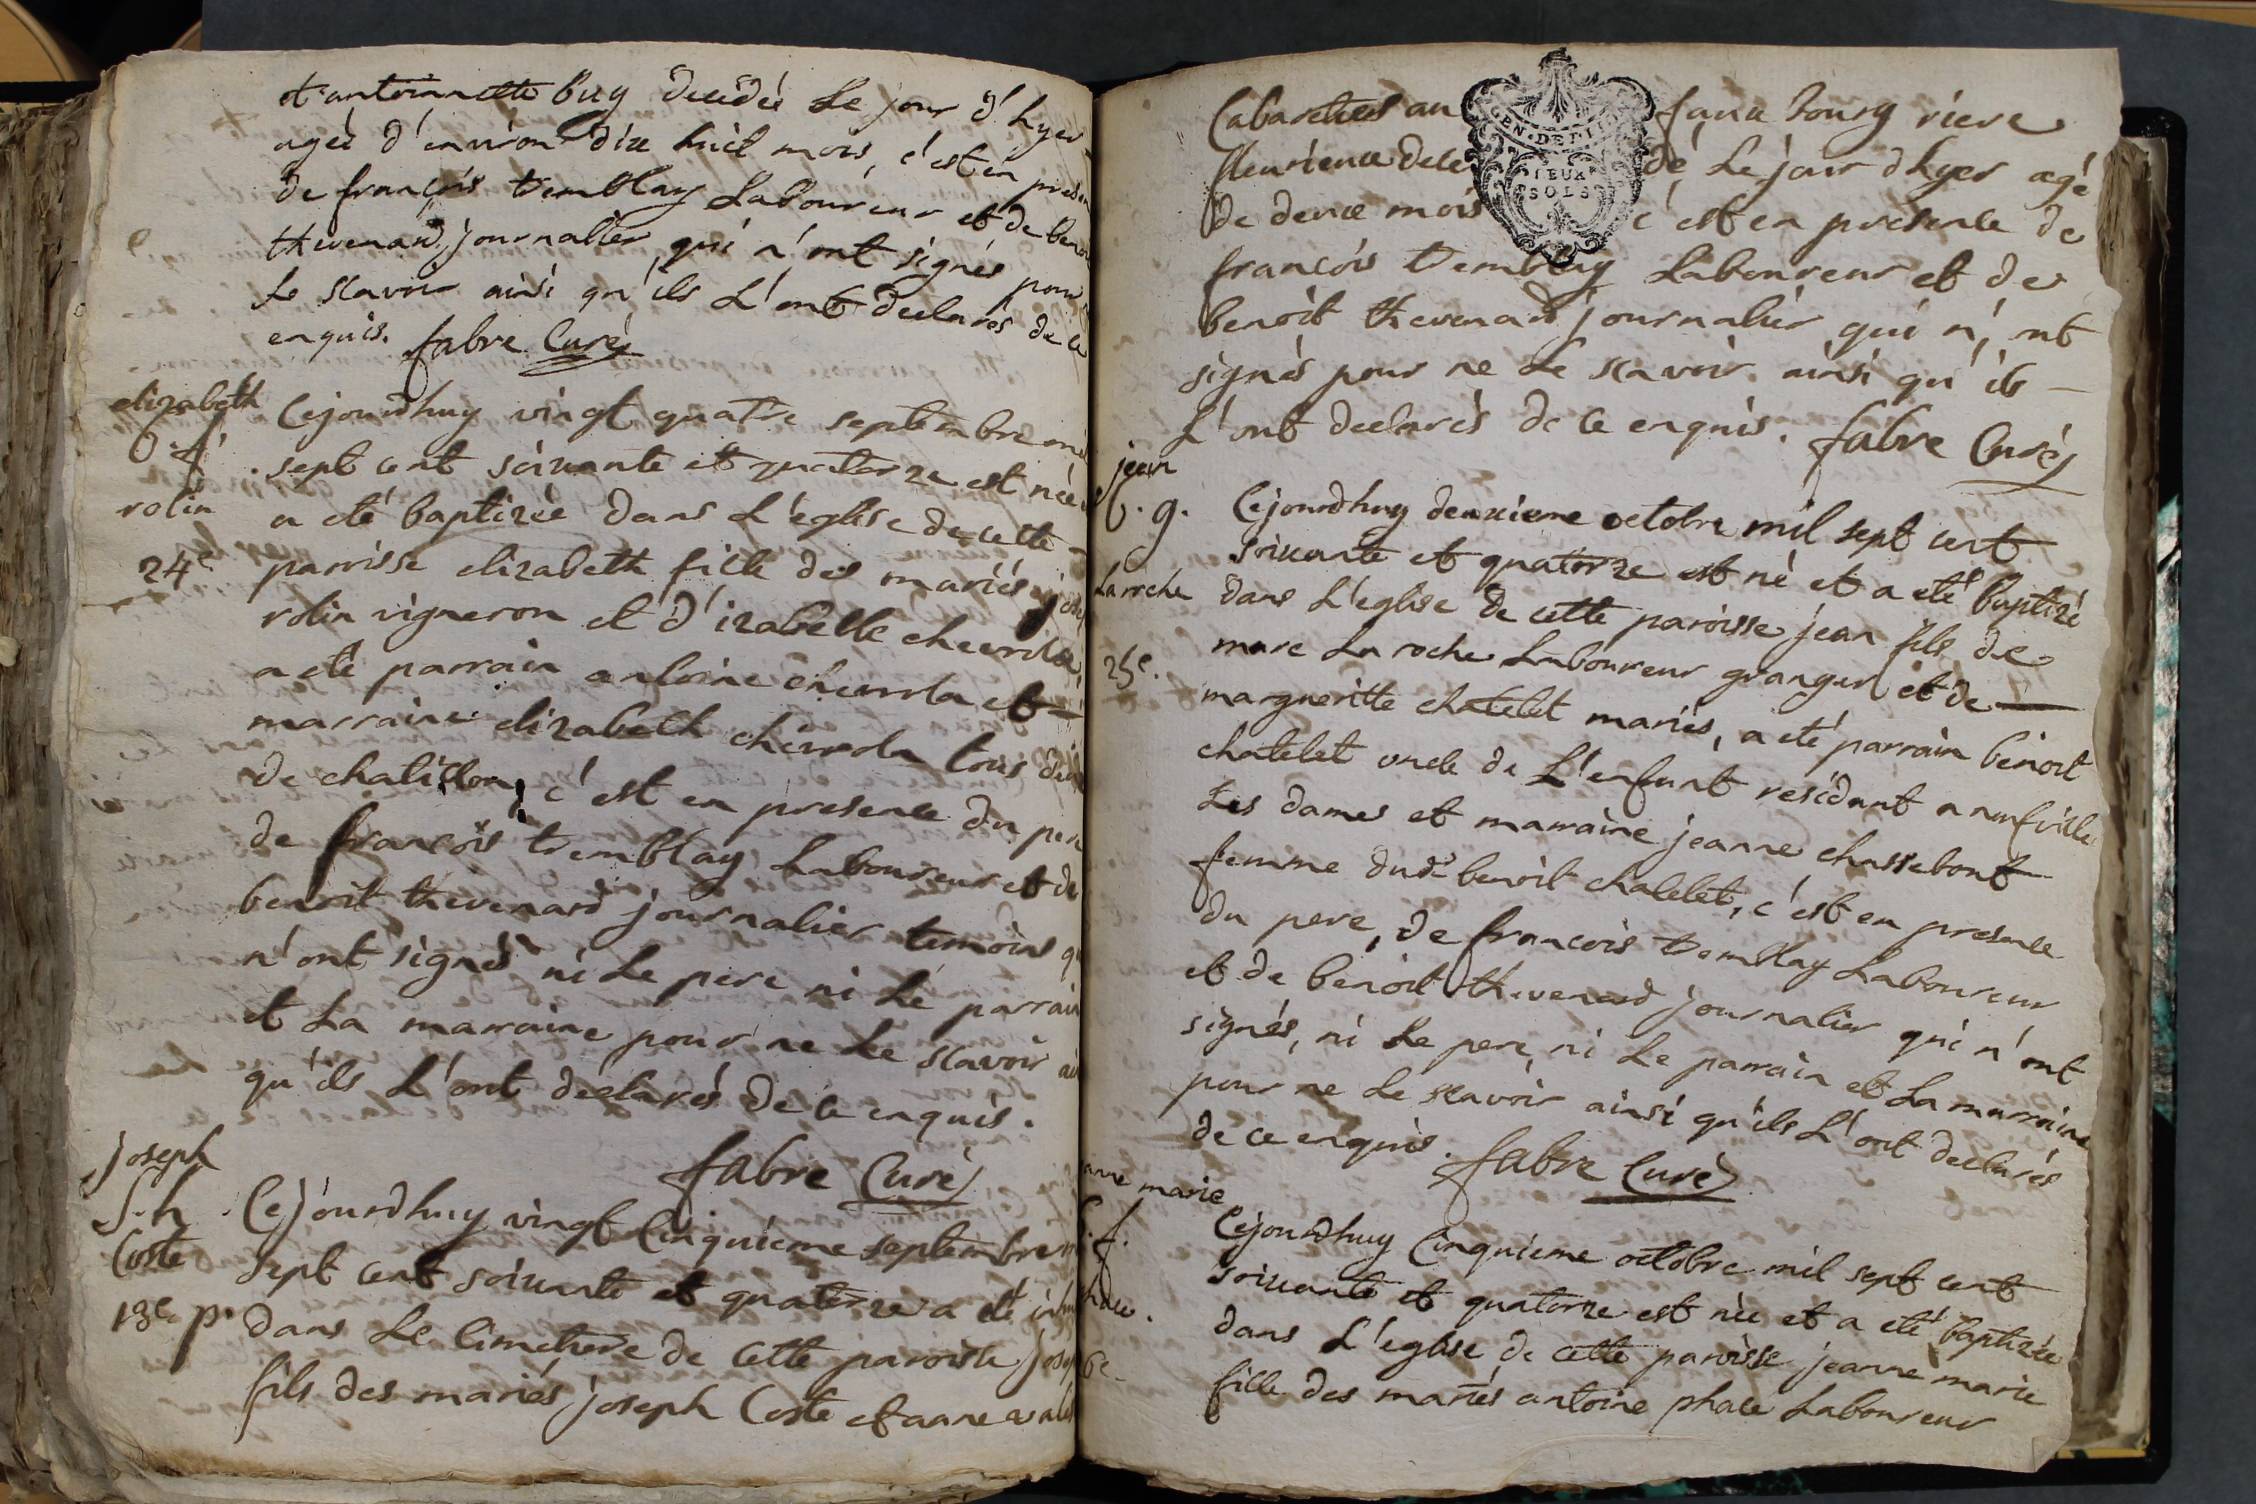 et antoinette buy decedée Le jour d'hyer
agée d'environ dix huit mois, c'est en presen
de françois tremblay Laboureur et de benoit
thevenard journalier qui n'ont signés pour
Le scavoir ainsi qu'ils L'ont declarés de ce
enquis. fabre Curé
elizabeth
b. f.
rolin
24e
Cejourdhuy vingt quatre septembre mil
sept cent soixante et quatorze est née
a eté baptizée dans L'église de cette
parroisse elizabeth fille des mariés
rolin vigneron et d'izabelle
a eté parrain antoine et
marraine elizabeth tous deux
de chatillon, c'est en presence du pere
de françois tremblay Laboureur et de
benoit thevenard journalier temoins qui
n'ont signés ni Le pere ni Le parrain
et La marraine pour ne Le scavoir ain
qu'ils L'ont déclarés de ce enquis.
fabre Curé
joseph
S. h
Coste
13e p.
Cejourdhuy vingt Cinquieme septembre
sept cent soixante et quatorze a eté inhu
dans Le Cimetiere de cette paroisse joseph
fils des mariés joseph Coste et anne
Cabaretier au faux bourg riere
fleurieux decedé Le jour d'hyer agé
de deux mois c'est en presence de
GEN. DE
DEUX
SOLS
françois tremblay Laboureur et de
benoit thevenard journalier qui n'ont
signés pour ne Le scavoir ainsi qu'ils
L'ont declarés de ce enquis. fabre Curé
jean
b. g.
Laroche
25e.
Cejourdhuy deuxieme octobre mil sept cent
soixante et quatorze est né et a eté baptizé
dans L'eglise de cette paroisse jean fils de
marc La roche Laboureur granger et de
margueritte chatelet mariés, a eté parrain benoit
chatelet oncle de L'enfant residant a neufville
Les dames et marraine jeanne chassebout
femme dudt benoit chatelet, c'est en presence
du pere, de françois tremblay Laboureur
et de benoit thevenard journalier qui n'ont
signés, ni Le pere, ni Le parrain et La marraine
pour ne Le scavoir ainsi qu'ils L'ont declarés
de ce enquis. fabre Curé
anne marie
b. f.
phale.
Cejourdhuy Cinquieme octobre mil sept cent
soixante et quatorze est née et a eté baptizée
dans L'eglise de cette paroisse jeanne marie
fille des mariés antoine phale Laboureur